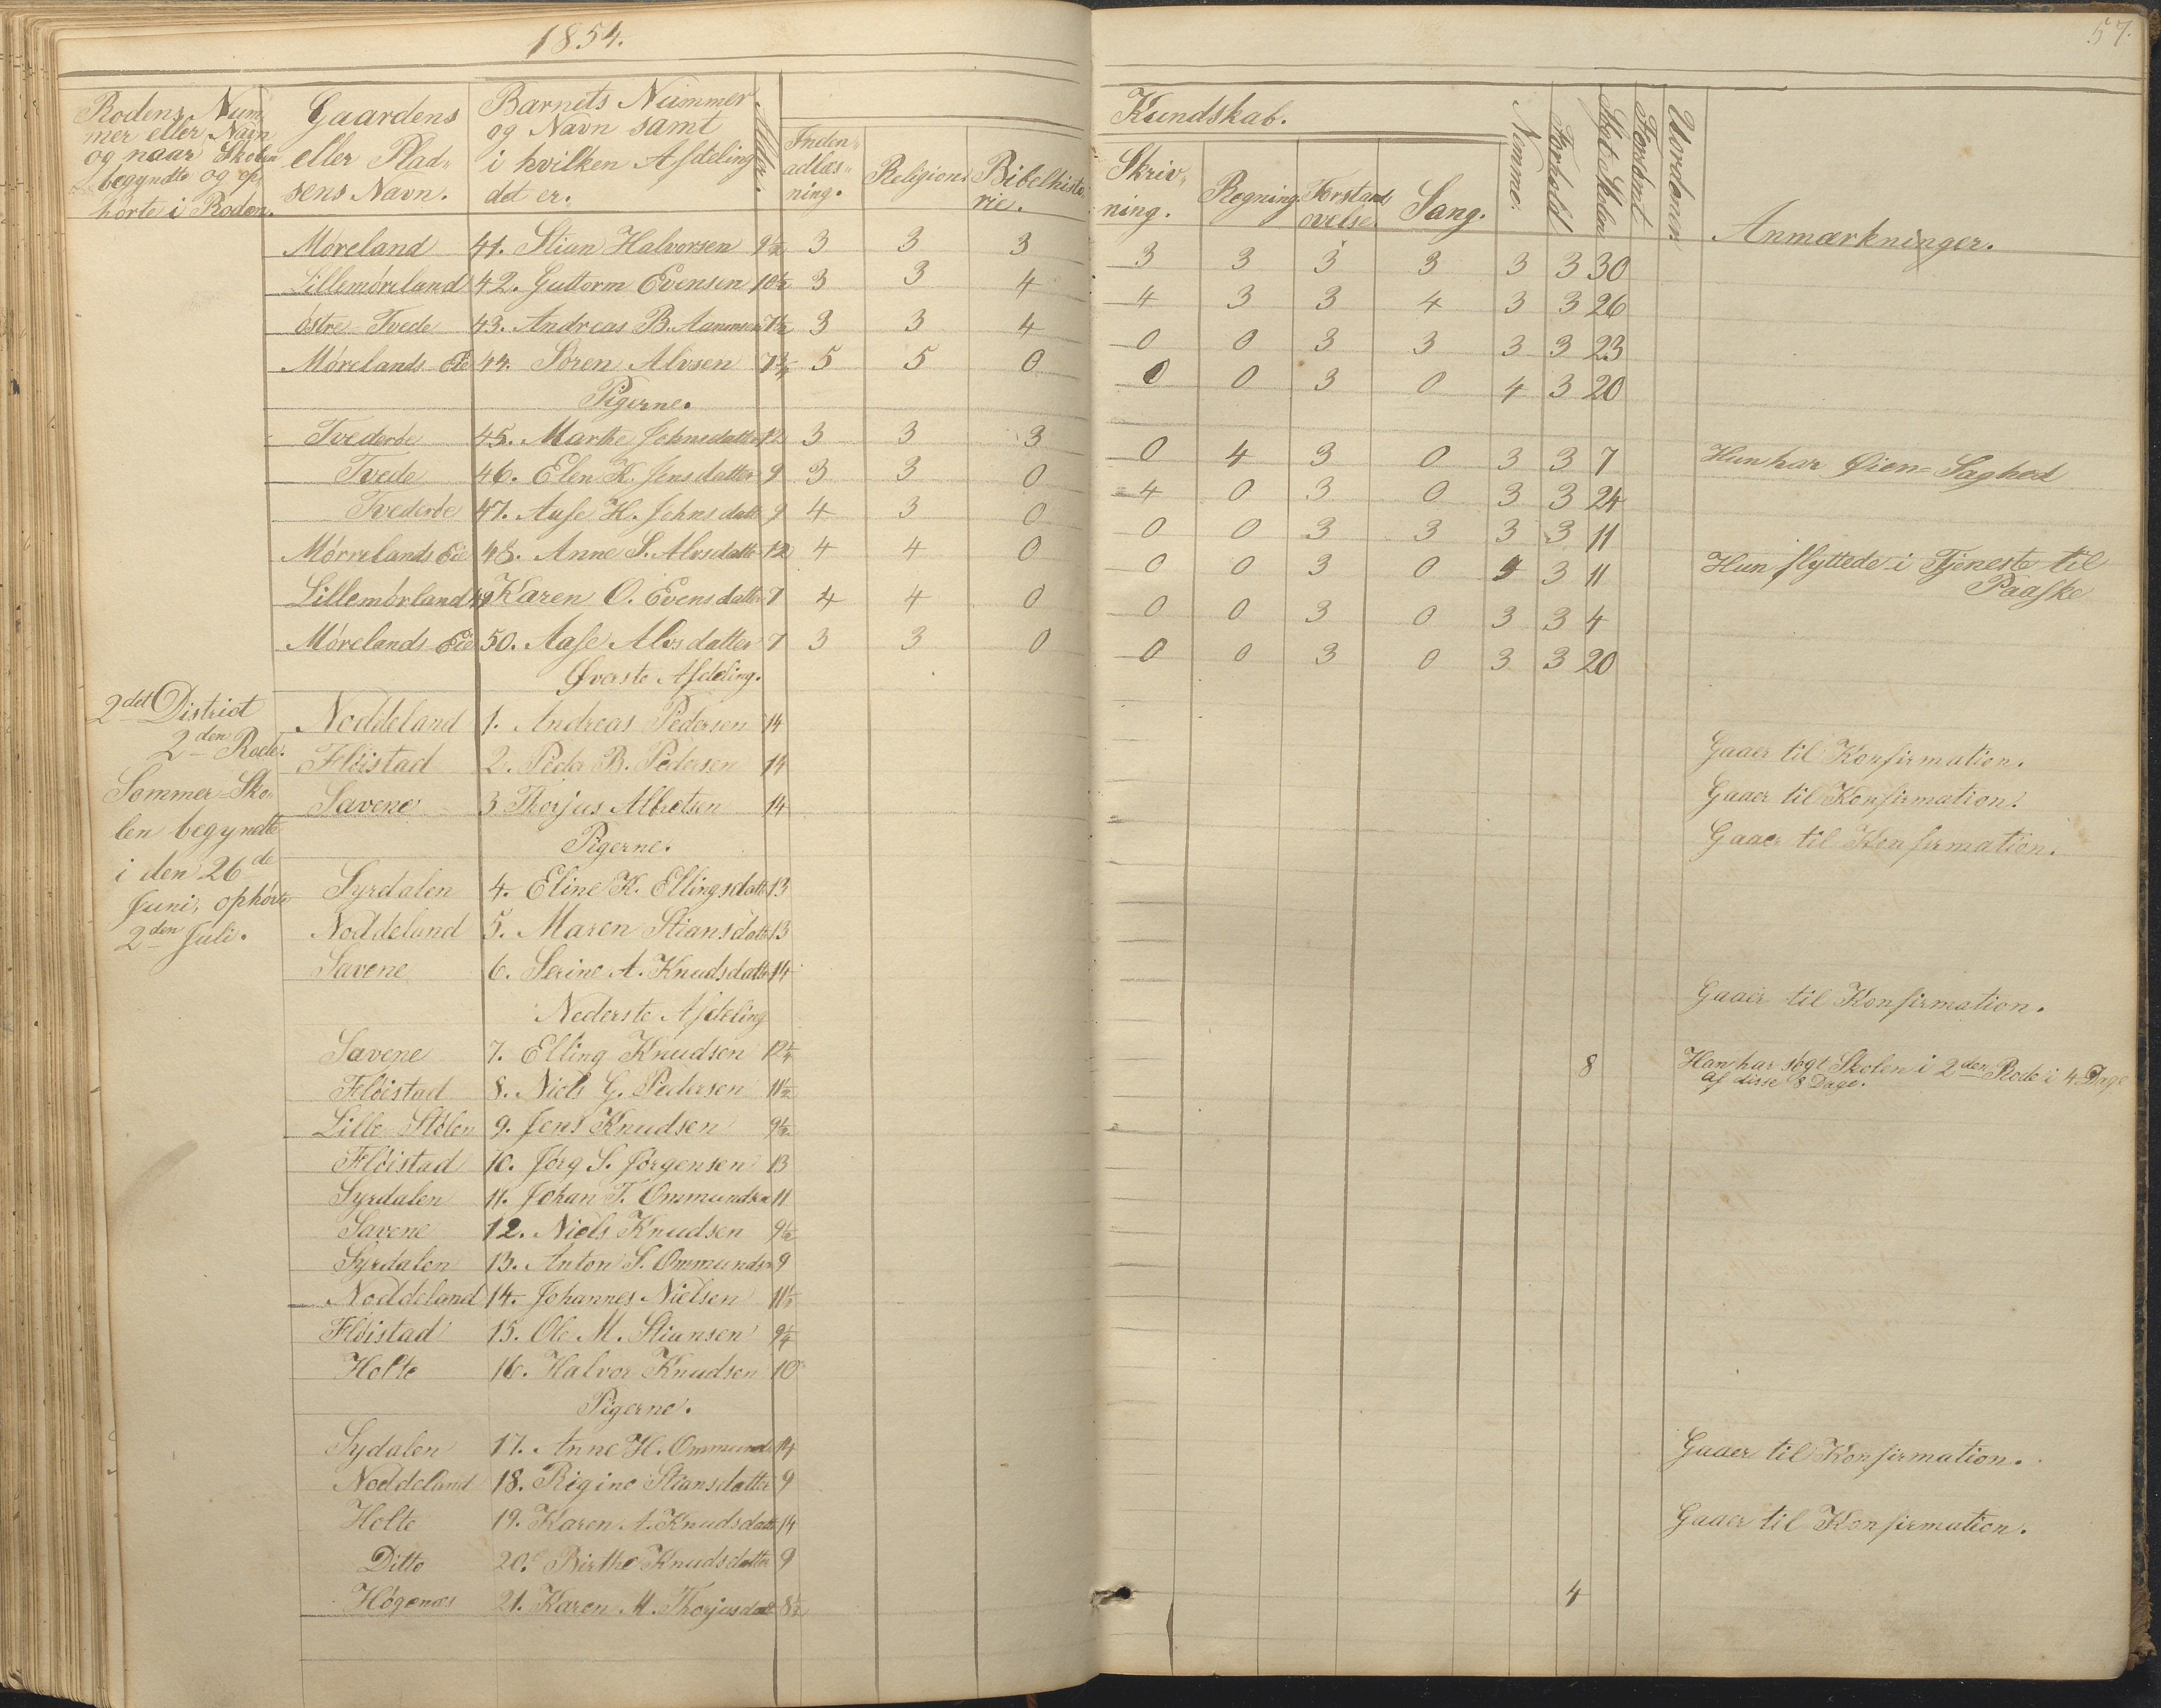 1854.
57.
Rodens Num
mer eller Navn
og naar Skolen
begyndte og op
hørte i Roden.
Gaardens
eller Plad-
sens Navn.
Barnets Nummer
og Navn samt
i hvilken Afdeling
det er.
Alder.
Inden-
adlæs-
ning.
Religion
Bibelhisto
rie.
Kundskab.
Skriv-
ning.
Regning.
Forstands
øvelse.
Sang.
Nemme.
Forhold
Søgt Skolen
Forsømt
Uordener
Anmærkninger.
Møreland 41. Stian Halvorsen 9½ 3 3 3 3 3 3 3 3 3 30
Lillemøreland 42. Guttorm Evensen 10½ 3 3 4 4 3 3 4 3 3 26
østre Tvede 43. Andreas B. Aanonsen 7½ 3 3 4 0 0 3 3 3 3 23
Mørelands Eie 44. Søren Alvsen 7¾ 5 5 0 0 0 3 0 4 3 20
Pigerne.
Tvederøe 45. Marthe Johnsdatter 12 3 3 3 0 4 3 0 3 3 7 Hun har Øien-Saghed
Tvede 46. Elen K. Jensdatter 9 3 3 0 4 0 3 0 3 3 24
Tvederøe 47. Aase H. Johnsdatt 9 4 3 0 0 0 3 3 3 3 11
Mørrelands Eie 48. Anne S. Alvsdatte 12 4 4 0 0 0 3 0 4 3 11 Hun flyttede i Tjeneste til
Paaske
Lillemørland 49 Karen O. Evensdatter 7 4 4 0 0 0 3 0 3 3 4
Mørelands Eie 50. Aase Alvsdatter 7 3 3 0 0 0 3 0 3 3 20
Øverste Afdeling.
2det District
2den Rode.
Sommer-Sko
len begyndte
i den 26de
Juni, ophørte
2den Juli.
Noddeland 1. Andreas Pedersen 14 Gaaer til Konfirmation.
Fløistad 2. Peder B. Pedersen 14 Gaaer til Konfirmation.
Savene 3 Thorjus Albretsen 14 Gaaer til Konfirmation.
Pigerne.
Syrdalen 4. Eline K. Ellingsdatt 13
Noddeland 5. Maren Stiansdatt 13
Savene 6. Serine A. Knudsdatt 14 Gaaer til Konfirmation.
Nederste Afdeling
Savene 7. Elling Knudsen 12¼ 8 Han har søgt Skolen i 2den Rode i 4 Dage
af disse 8 Dage.
Fløistad 8. Niels G. Pedersen 11½
Lille Stølen 9. Jens Knudsen 9½
Fløistad 10. Jørg S. Jørgensen 13
Syrdalen 11. Johan T. Ommundsen 11
Savene 12. Niels Knudsen 9½
Syrdalen 13. Anton S. Ommunds 9
Noddeland 14. Johannes Nielsen 11½
Fløistad 15. Ole M. Stiansen 9¼
Holte 16. Halvor Knudsen 10
Pigerne.
Sydalen 17. Anne H. Ommunds 14 Gaaer til Konfirmation.
Noddeland 18. Rigine Stiansdatter 9
Holte 19. Karen A. Knudsdatt 14 Gaaer til Konfirmation.
Ditto 20. Birthe Knudsdatter 9
Høgenæs 21. Karen M. Thorjusdatt 8½ 4